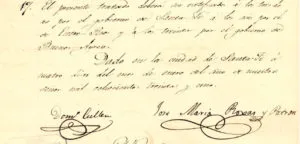 17. El presente tratado deberá ser ratificado a los tres dias
por el gobierno de Santa Fé, a los seis por el
de Entre Rios y a los treinta por el gobierno de
Buenos Aires.
Dado en la ciudad de Santa Fé á
cuatro dias del mes de enero del año de nuestro
señor mil ochocientos treinta y uno.
Domo Cullen José Maria Roxas y Patron